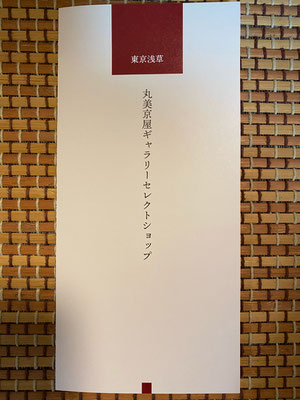 東京浅草
丸美京屋ギャラリーセレクトショップ